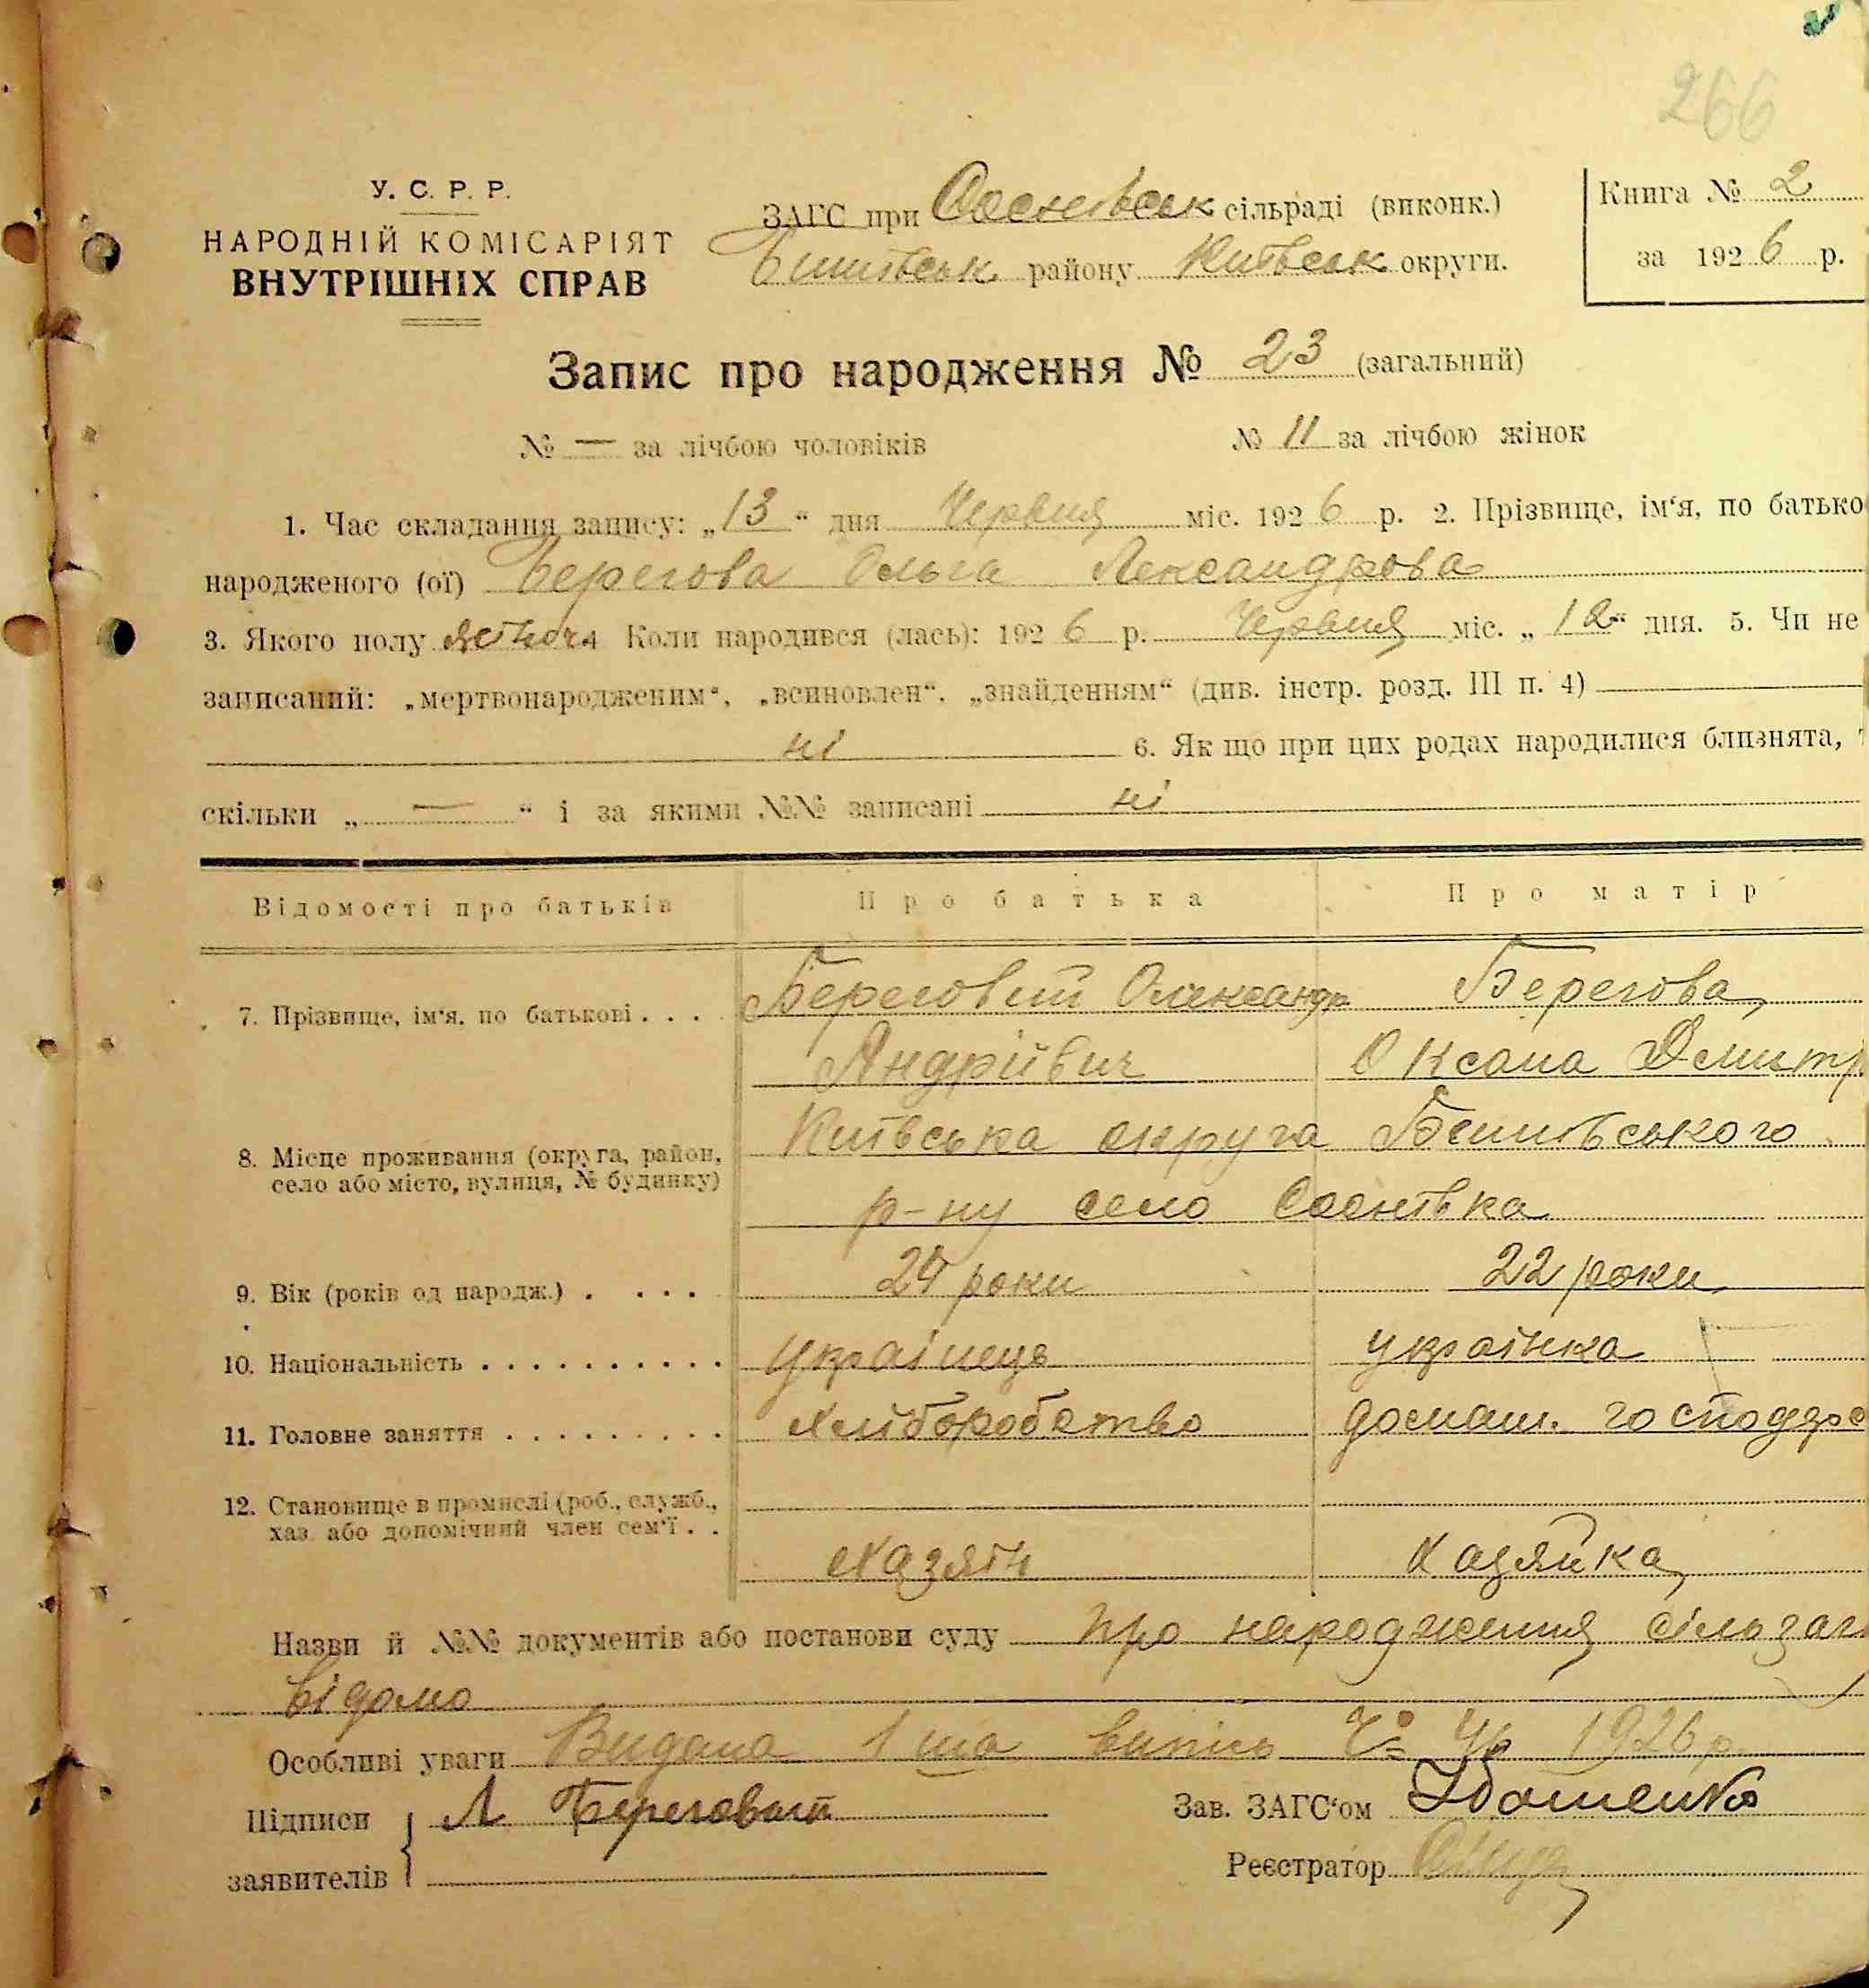 266
У. С. Р. Р.
НАРОДНІЙ КОМІСАРІЯТ
ВНУТРІШНІХ СПРАВ
ЗАГС при Соснівськ сільраді (виконк.)
району Київськ округи.
Книга № 2
за 1926 р.
Запис про народження № 23 (загальний)
№ — за лічбою чоловіків № 11 за лічбою жінок
1. Час складання запису: „13“ дня Червня міс. 1926 р. 2. Прізвище, ім‘я, по батько
народженого (ої) Берегова Ольга Александрова
3. Якого полу жіноч. 4 Коли народився (лась): 1926 р. Червня міс. „12“ дня. 5. Чи не
записаний: „мертвонародженим“, „всиновлен“, „знайденням“ (див. інстр. розд. III п. 4)
ні 6. Як що при цих родах народилися близнята,
скільки „ — “ і за якими №№ записані ні
Відомості про батьків Про батька Про матір
7. Прізвище, ім‘я, по батькові . . . . Береговий Олександр Берегова
Андрійвич Оксана Дмитр.
8. Місце проживання (округа, район, село або місто, вулиця, № будинку) Київська округа Бишівського
р-ну село Соснівка
9. Вік (років од народж.) . . . . 24 роки 22 роки
10. Національність . . . . . . . . . . Українець українка
11. Головне заняття . . . . . . . . . Хліборобство домаш. господар
12. Становище в промислі (роб., служб.,
хаз. або допомічний член сем‘ї . .
Хазяїн Хазяйка
Назви й №№ документів або постанови суду про народження сільзаг
відомо
Особливі уваги Видана 1 ша випись 1926 р.
Підписи Л Береговий Зав. ЗАГС‘ом
заявителів Реєстратор